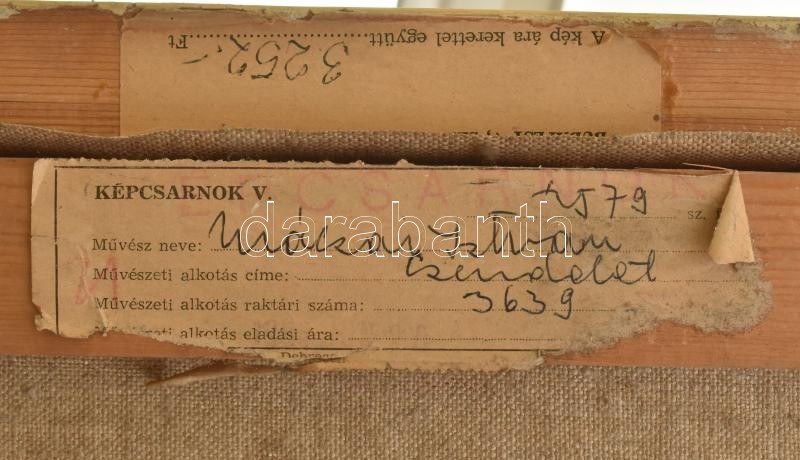 A kép ára kerettel együtt....................Ft
3252.-
KÉPCSARNOK V.
KÉPCSARNOK
sz.
Művész neve: Mókus István
Művészeti alkotás címe: Csendélet
Művészeti alkotás raktári száma: 3639
Művészeti alkotás eladási ára:
darabanth